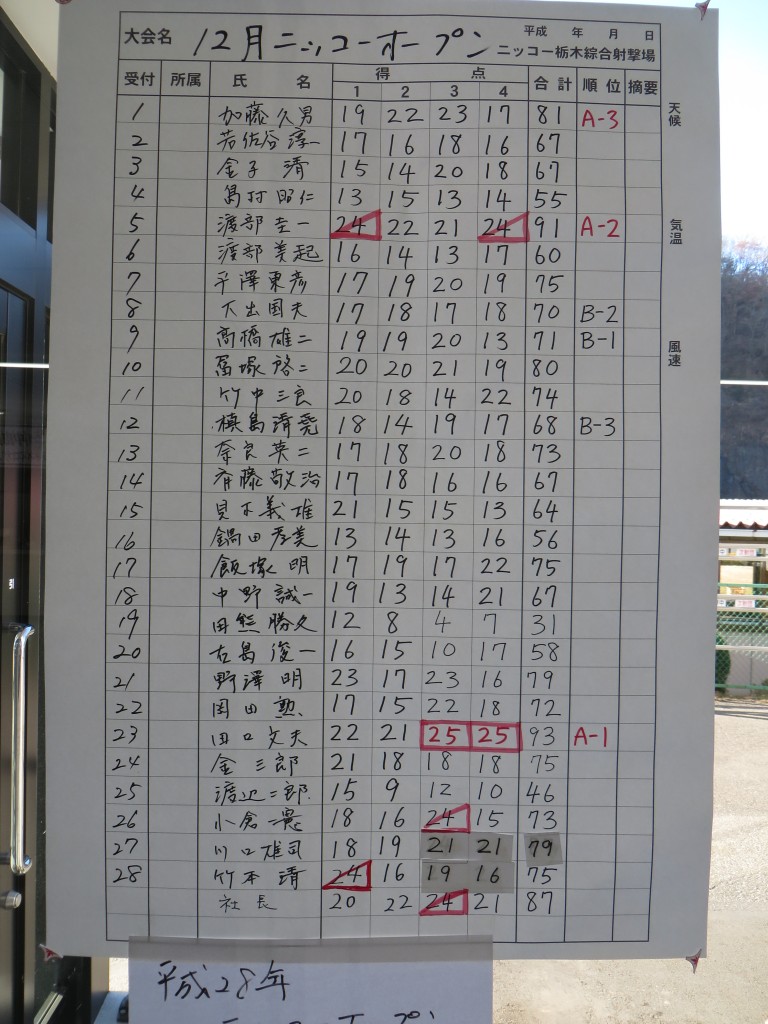 大会名 12月ニッコーオープン 平成 年 月 日
ニッコー栃木綜合射撃場
受付 所属 氏 名 得 点 合計 順位 摘要
1 2 3 4
天候
気温
風速
1 加藤久男 19 22 23 17 81 A-3
2 若佐谷淳一 17 16 18 16 67
3 金子 清 15 14 20 18 67
4 島村昭仁 13 15 13 14 55
5 渡部圭一 24 22 21 24 91 A-2
6 渡部美起 16 14 13 17 60
7 平澤東彦 17 19 20 19 75
8 大出国夫 17 18 17 18 70 B-2
9 高橋雄二 19 19 20 13 71 B-1
10 冨塚啓二 20 20 21 19 80
11 竹中三良 20 18 14 22 74
12 槙島清尭 18 14 19 17 68 B-3
13 奈良英二 17 18 20 18 73
14 斉藤敬治 17 18 16 16 67
15 見木義雄 21 15 15 13 64
16 鍋田 美 13 14 13 16 56
17 飯塚 明 17 19 17 22 75
18 中野誠一 19 13 14 21 67
19 田熊勝久 12 8 4 7 31
20 古島俊一 16 15 10 17 58
21 野澤 明 23 17 23 16 79
22 岡田 勲 17 15 22 18 72
23 田口文夫 22 21 25 25 93 A-1
24 金 三郎 21 18 18 18 75
25 渡辺二郎 15 9 12 10 46
26 小倉 18 16 24 15 73
27 川口雄司 18 19 21 21 79
28 竹本 靖 24 16 19 16 75
社長 20 22 24 21 87
平成28年